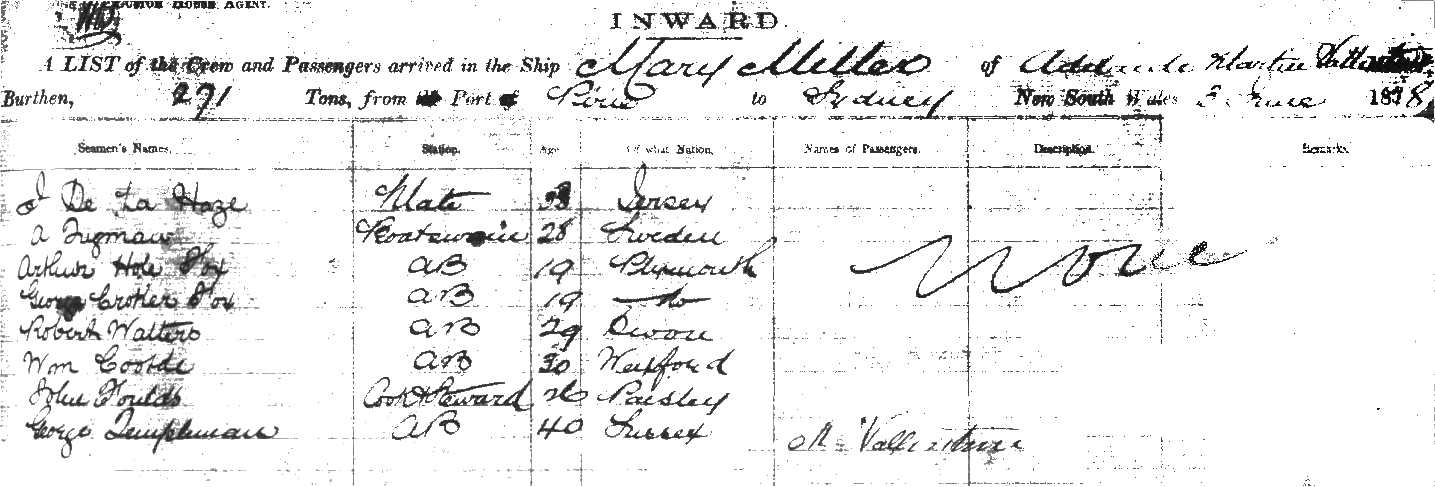 HOUSE AGENT.
INWARD.
A LIST of the Crew and Passengers arrived in the Ship Mary Miller of Adelaide Martin
Burthen, 271 Tons, from the Port of Pirie to Sydney New South Wales 5 June 1878
Seamen's Names. Station. Age Of what Nation. Names of Passengers. Description. Remarks.
J De La Haze Mate 33 Jersey
A Boatswain 28 Sweden
Arthur Hole Fox AB 19 Plymouth None
George Croker Fox AB 19 do
Robert Watters AB 29 Devon
Wm AB 30 Wexford
John Foulds Cook & Steward 26 Paisley
George Templeman AB 40 Sussex